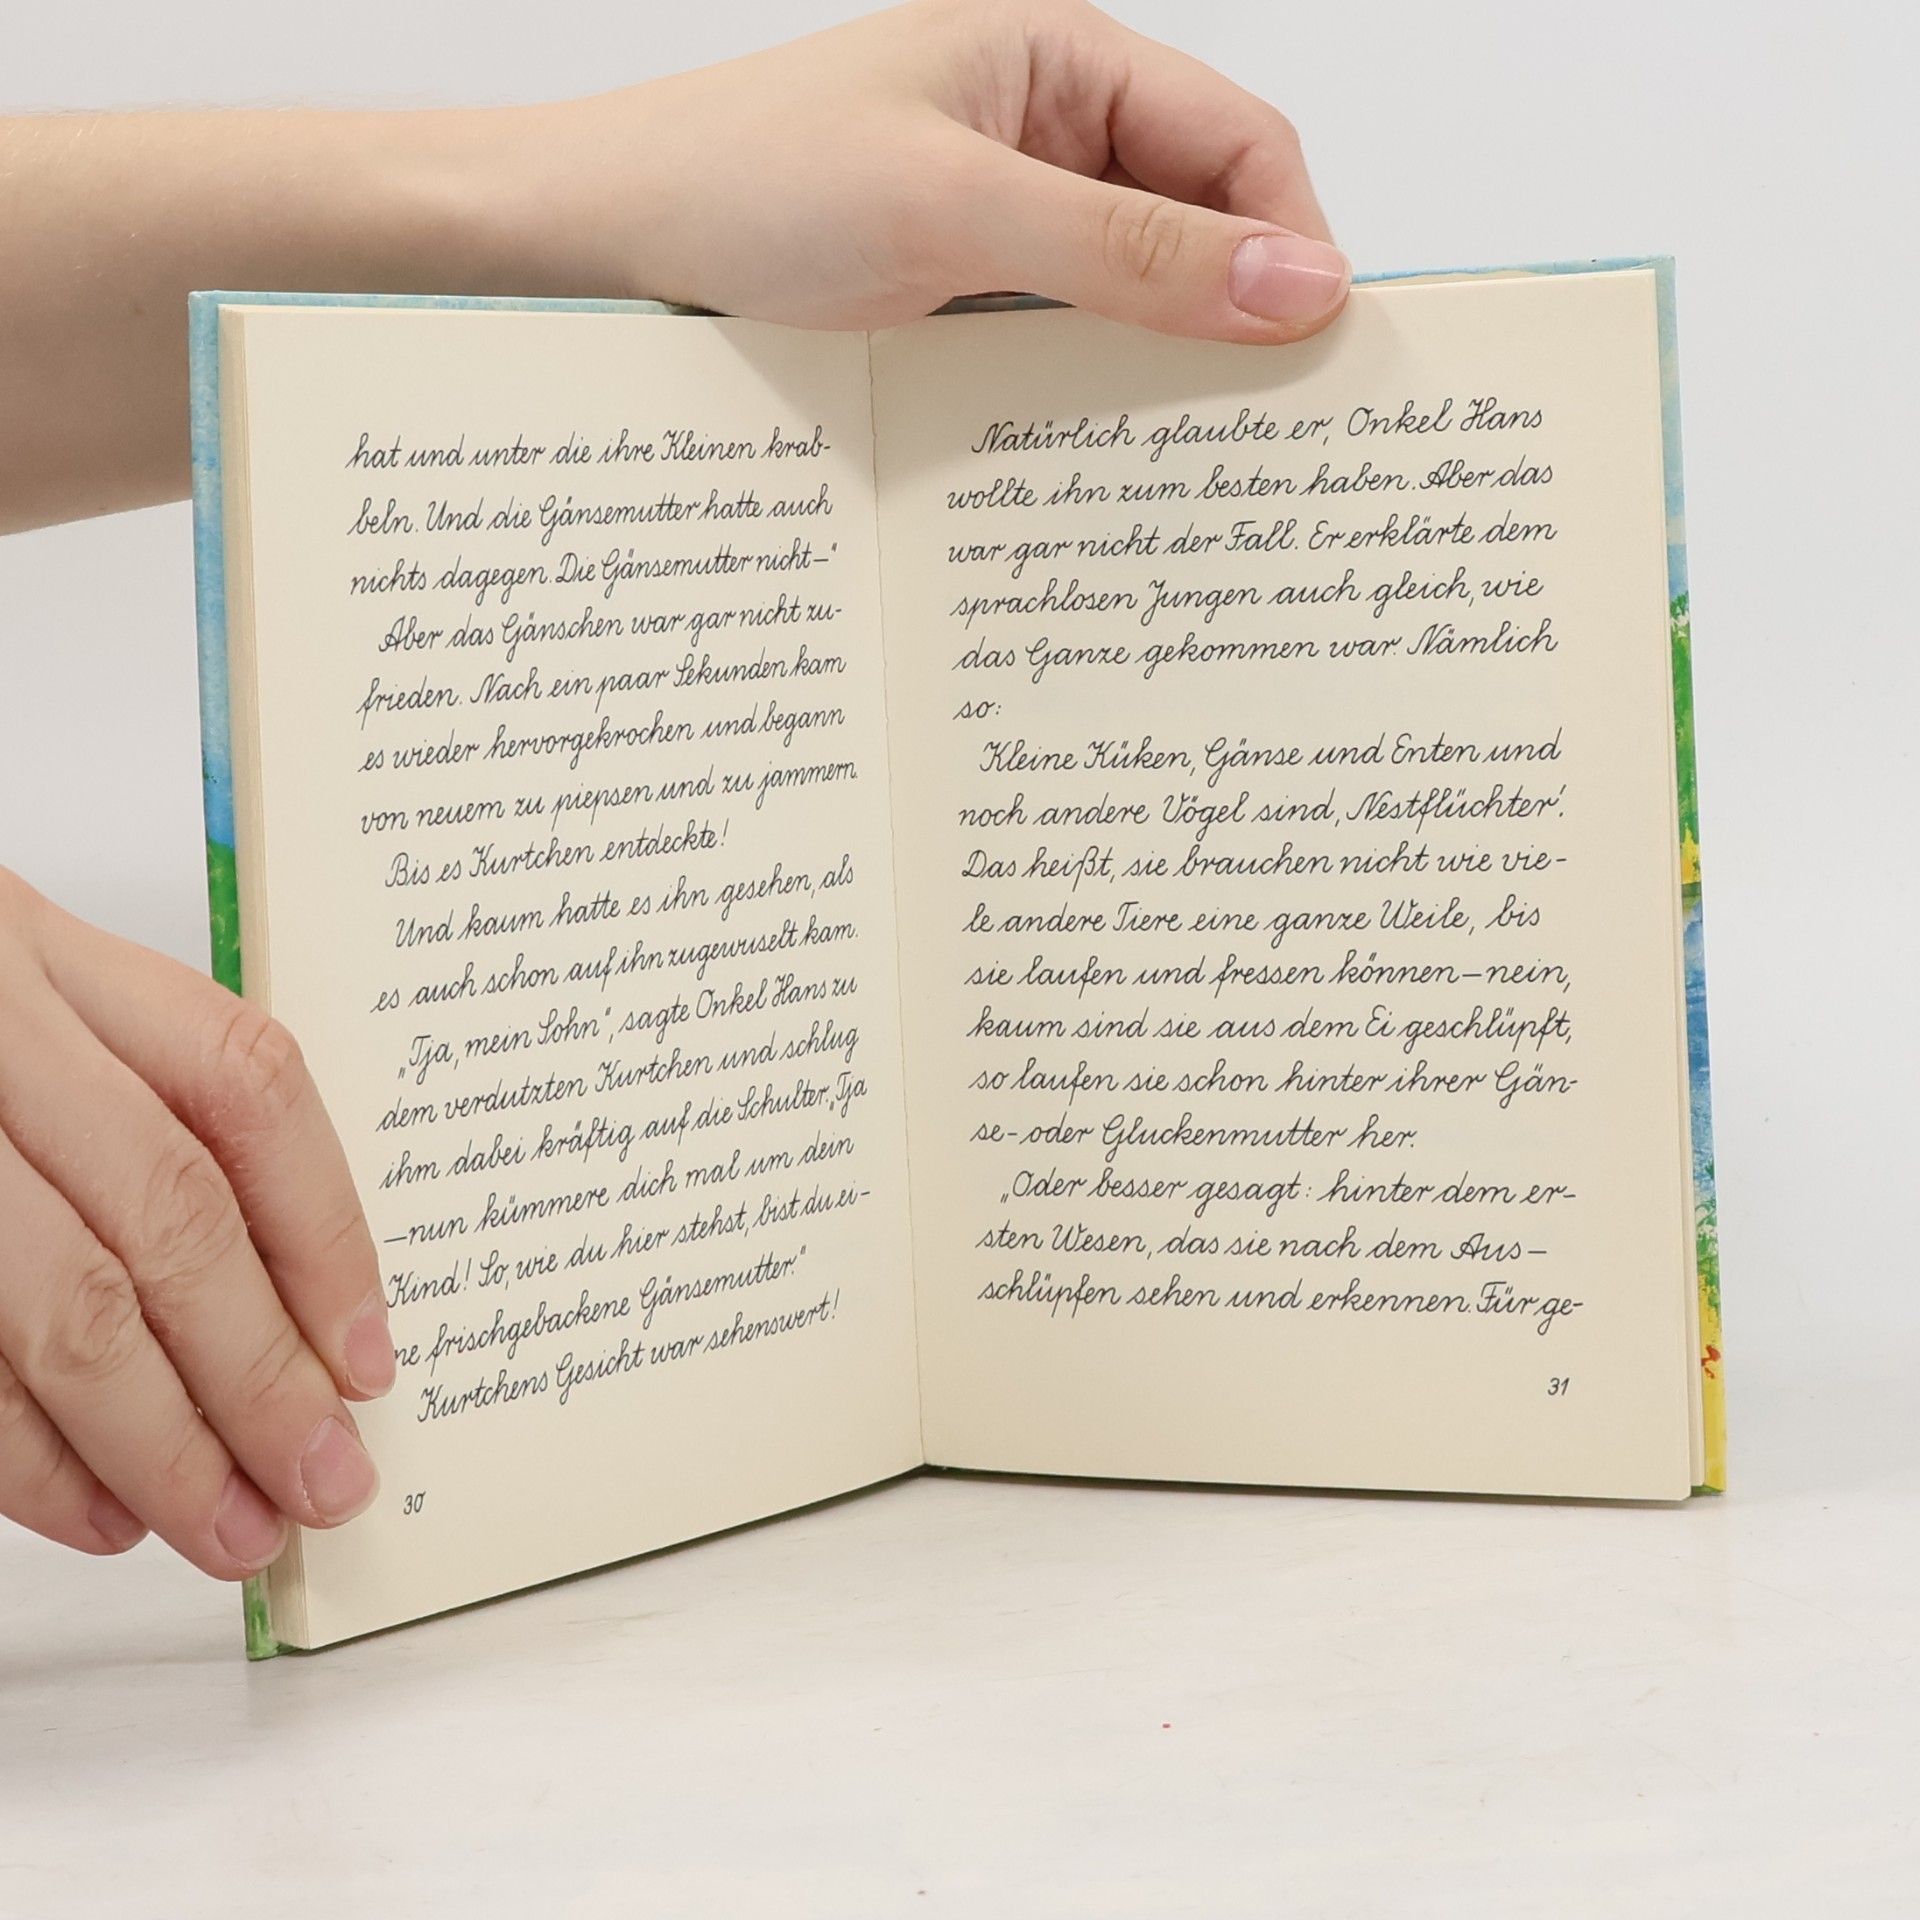 hat und unter die ihre Kleinen krab-
beln. Und die Gänsemutter hatte auch
nichts dagegen. Die Gänsemutter nicht–"
Aber das Gänschen war gar nicht zu-
frieden. Nach ein paar Sekunden kam
es wieder hervorgekrochen und begann
von neuem zu piepsen und zu jammern.
Bis es Kurtchen entdeckte!
Und kaum hatte es ihn gesehen, als
es auch schon auf ihn zugewuselt kam.
„Tja, mein Sohn", sagte Onkel Hans zu
dem verdutzten Kurtchen und schlug
ihm dabei kräftig auf die Schulter. „Tja
–nun kümmere dich mal um dein
Kind! So, wie du hier stehst, bist du ei-
ne frischgebackene Gänsemutter."
Kurtchens Gesicht war sehenswert!
30
Natürlich glaubte er, Onkel Hans
wollte ihn zum besten haben. Aber das
war gar nicht der Fall. Er erklärte dem
sprachlosen Jungen auch gleich, wie
das Ganze gekommen war. Nämlich
so:
Kleine Küken, Gänse und Enten und
noch andere Vögel sind ‚Nestflüchter'.
Das heißt, sie brauchen nicht wie vie-
le andere Tiere eine ganze Weile, bis
sie laufen und fressen können – nein,
kaum sind sie aus dem Ei geschlüpft,
so laufen sie schon hinter ihrer Gän-
se- oder Gluckenmutter her.
„Oder besser gesagt: hinter dem er-
sten Wesen, das sie nach dem Aus-
schlüpfen sehen und erkennen. Für ge-
31